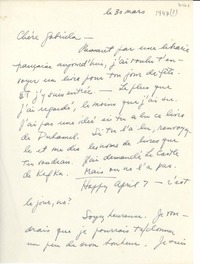 le 30 mars 1948(?)
Chère Gabriela –
Passant par une librairie
française aujourd'hui, j'ai voulu t'en-
voyer un livre pour ton jour de fête.
ET j'y suis entrée – Le plus que
j'ai regardé, le moins que j'ai su.
J'ai pas une idée si tu as lu ce livre
de Duhamel. Si tu l'a lu, renvoye
le et me dis les noms de livres que
tu voudrais. J'ai demandé Le Castle
de Kafka. Mais on ne l'a pas.
Happy April 7 – c'est
le jour, no?
Soyez heureuse. Je vou-
drais que je pourrais t'
un peu de mon bonheur. Je suis